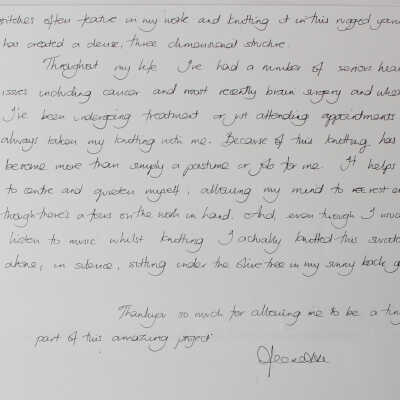 stitches often feature in my work and knotting it in this rugged yarn
has created a dense, three dimensional structure.
Throughout my life I've had a number of serious heal
issues including cancer and most recently brain surgery and when
I've been undergoing treatment or just attending appointments
always taken my knotting with me. Because of this knotting has
become more than simply a pastime or job for me. It helps
to centre and quieten myself, allowing my mind to rest
though there's a focus on the work in hand. And, even though I usua
listen to music whilst knotting I actually knotted this swatc
alone, in silence, sitting under the olive tree in my sunny back
Thankyou so much for allowing me to be a tiny
part of this amazing project